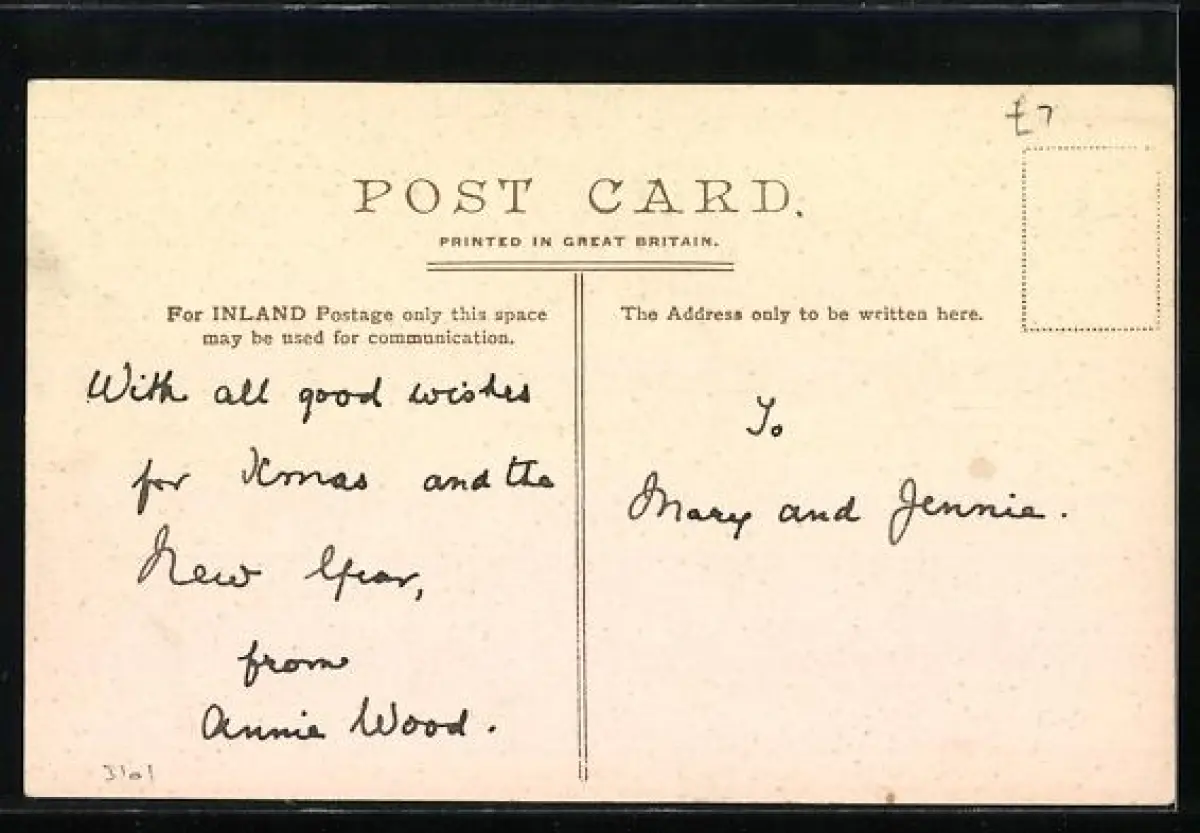 £7
POST CARD.
PRINTED IN GREAT BRITAIN.
For INLAND Postage only this space
may be used for communication.
The Address only to be written here.
With all good wishes
for Xmas and the
New Year,
from
Annie Wood.
To
Mary and Jennie.